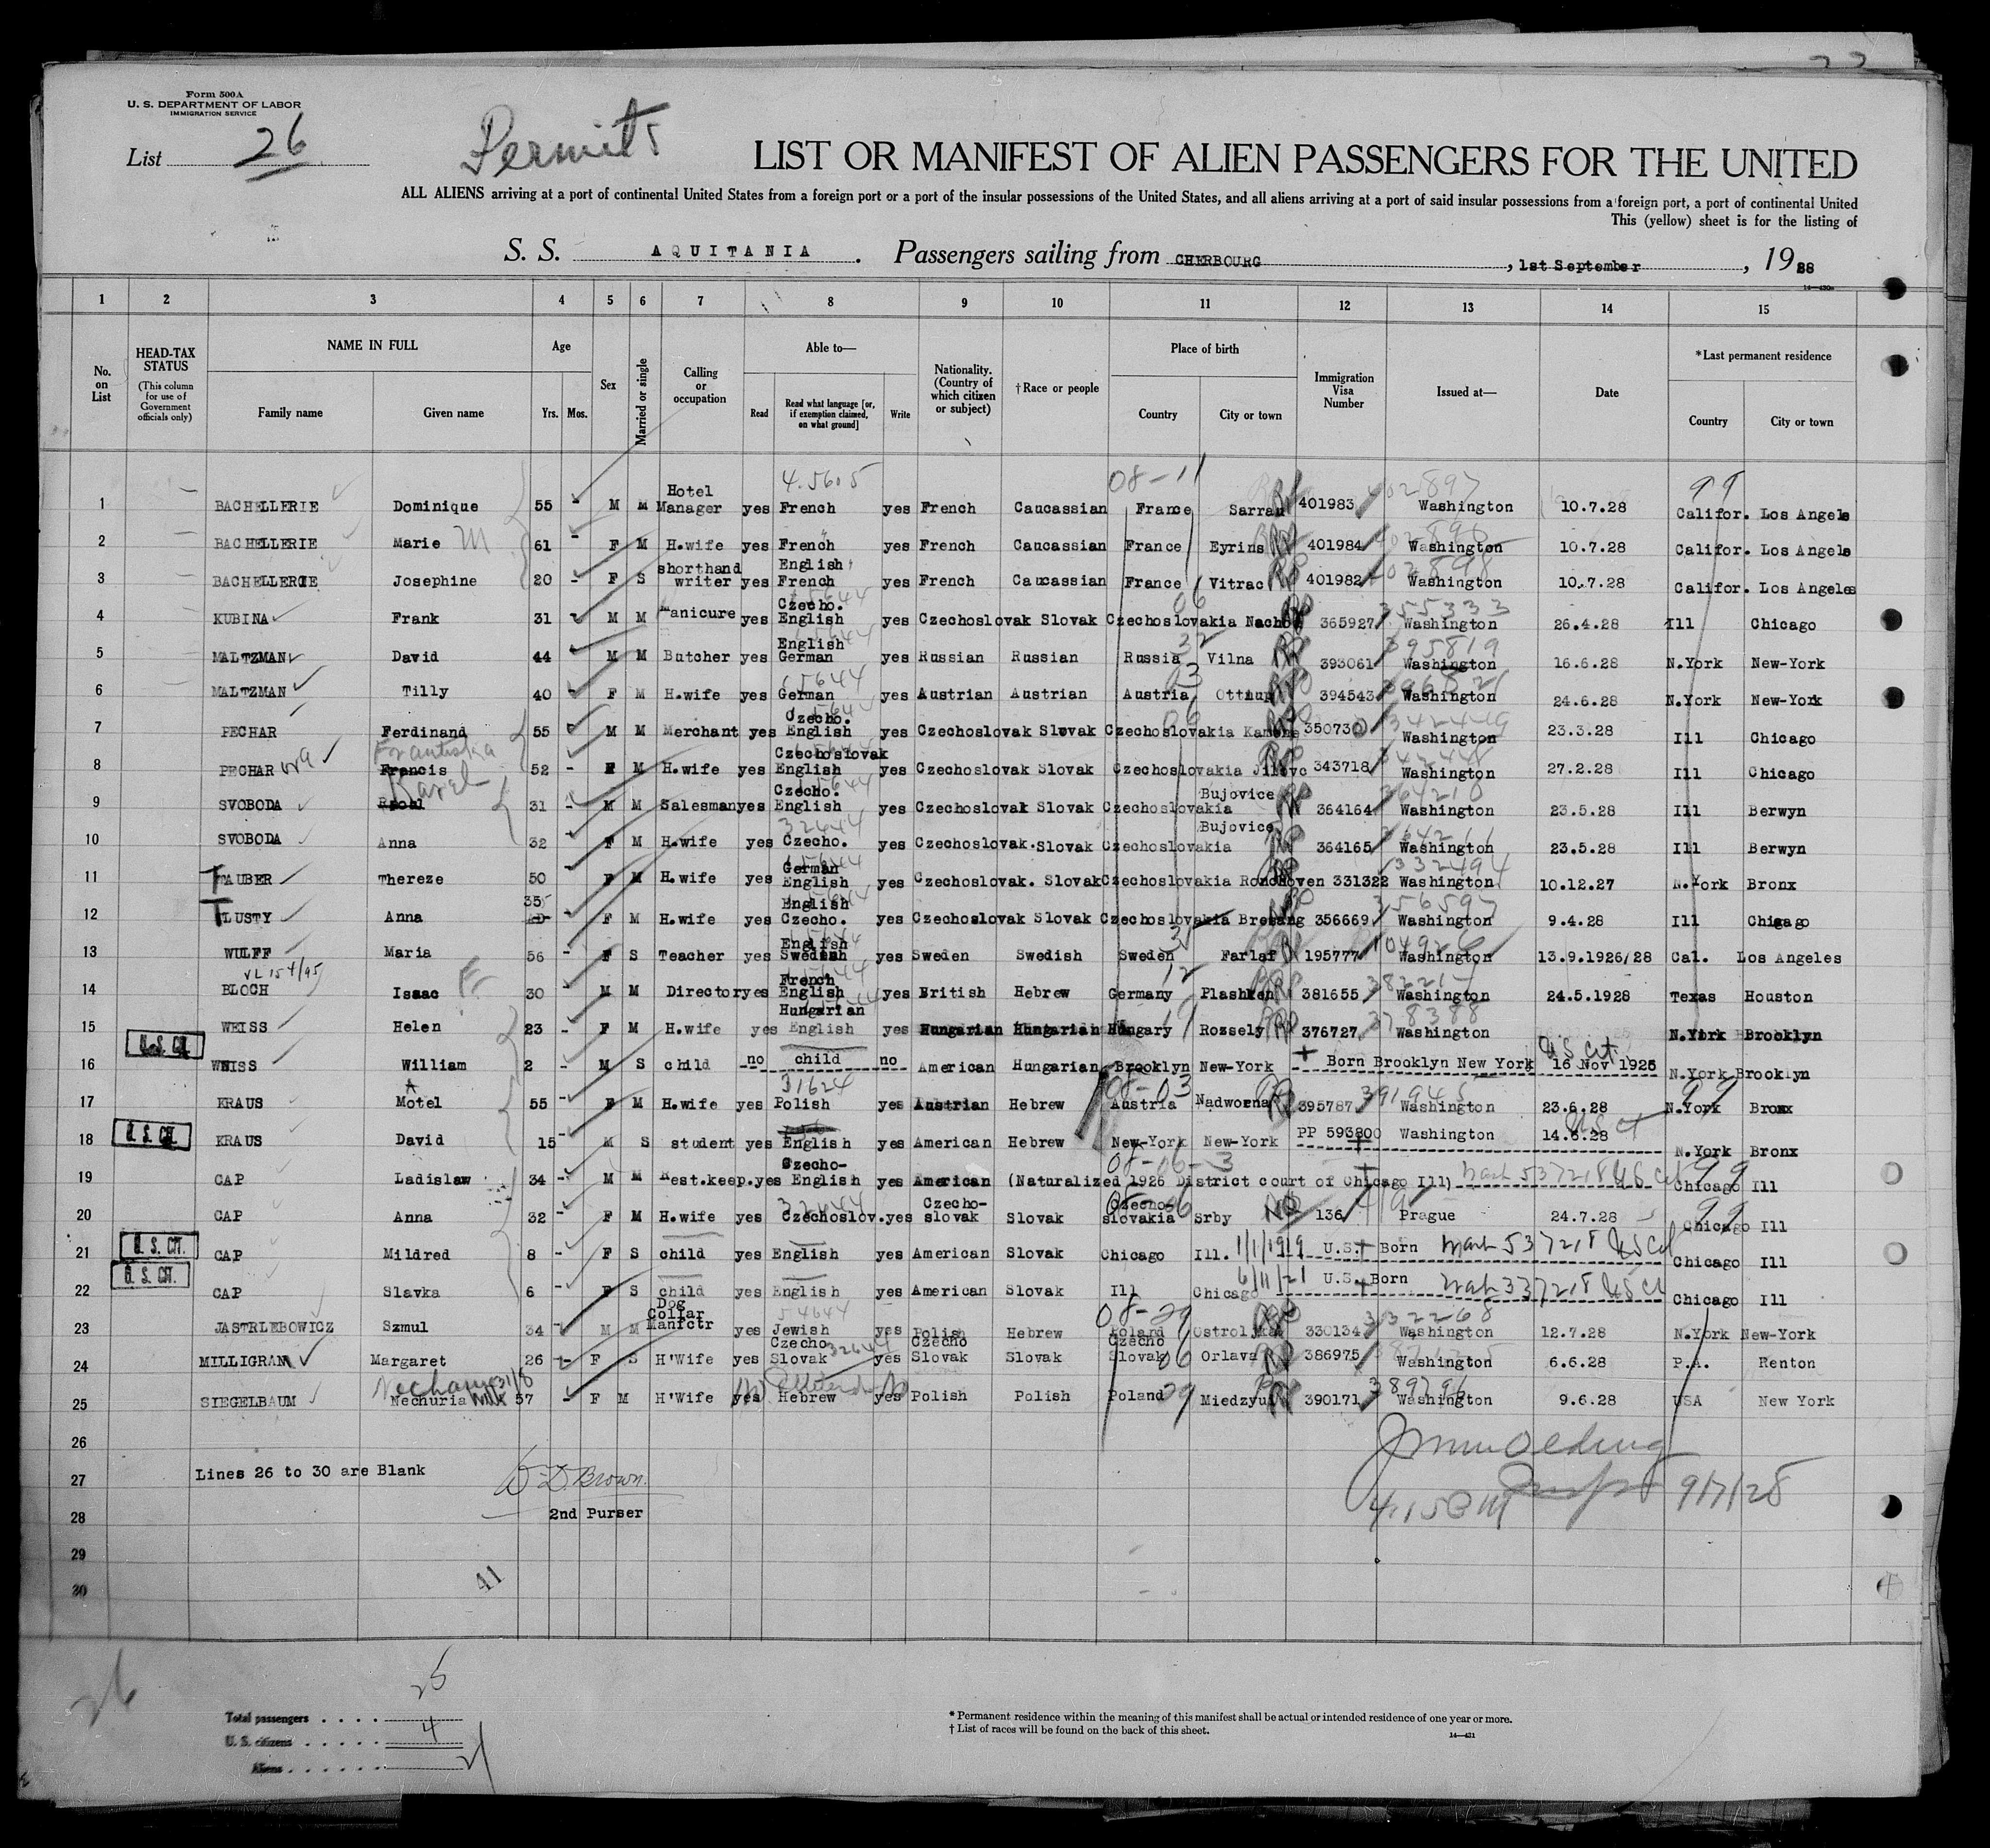 Form 500A
U. S. DEPARTMENT OF LABOR
IMMIGRATION SERVICE
List 26
Permits
LIST OR MANIFEST OF ALIEN PASSENGERS FOR THE UNITED
ALL ALIENS arriving at a port of continental United States from a foreign port or a port of the insular possessions of the United States, and all aliens arriving at a port of said insular possessions from a foreign port, a port of continental United
This (yellow) sheet is for the listing of
S. S. AQUITANIA. Passengers sailing from CHERBOURG, 1st September, 1928
1 2 3 4 5 6 7 8 9 10 11 12 13 14 15
No. on List
HEAD-TAX STATUS (This column for use of Government officials only)
NAME IN FULL Family name Given name
Age Yrs. Mos.
Sex
Married or single
Calling or occupation
Able to— Read Read what language [or, if exemption claimed, on what ground] Write
Nationality. (Country of which citizen or subject)
† Race or people
Place of birth Country City or town
Immigration Visa Number
Issued at—
Date
*Last permanent residence Country City or town
1 BACHELLERIE Dominique 55 M M Hotel Manager yes French yes French Caucassian France Sarran 401983 Washington 10.7.28 Califor. Los Angels
2 BACHELLERIE Marie M 61 F M H.wife yes French yes French Caucassian France Eyrins 401984 Washington 10.7.28 Califor. Los Angels
3 BACHELLERIE Josephine 20 F S shorthand writer yes English French yes French Caucassian France Vitrac 401982 Washington 10.7.28 Califor. Los Angeles
4 KUBINA Frank 31 M M Manicure yes Czecho. English yes Czechoslovak Slovak Czechoslovakia Nachod 365927 Washington 26.4.28 Ill Chicago
5 MALTZMAN David 44 M M Butcher yes English German yes Russian Russian Russia Vilna 393061 Washington 16.6.28 N.York New-York
6 MALTZMAN Tilly 40 F M H.wife yes German yes Austrian Austrian Austria 394543 Washington 24.6.28 N.York New-York
7 PECHAR Ferdinand 55 M M Merchant yes Czecho. English yes Czechoslovak Slovak Czechoslovakia 350730 Washington 23.3.28 Ill Chicago
8 PECHAR ova Francis Frantiska 52 F M H.wife yes Czechoslovak English yes Czechoslovak Slovak Czechoslovakia 343718 Washington 27.2.28 Ill Chicago
9 SVOBODA Karel 31 M M Salesman yes Czecho. English yes Czechoslovak Slovak Czechoslovakia Bujovice 364164 Washington 23.5.28 Ill Berwyn
10 SVOBODA Anna 32 F M H.wife yes Czecho. yes Czechoslovak. Slovak Czechoslovakia Bujovice 364165 Washington 23.5.28 Ill Berwyn
11 TAUBER Thereze 50 F M H.wife yes German English yes Czechoslovak. Slovak Czechoslovakia 331322 Washington 10.12.27 N.York Bronx
12 TLUSTY Anna 35 F M H.wife yes English Czecho. yes Czechoslovak Slovak Czechoslovakia 356669 Washington 9.4.28 Ill Chicago
13 WULFF Maria 56 F S Teacher yes English Swedish yes Sweden Swedish Sweden 195777 Washington 13.9.1926/28 Cal. Los Angeles
14 BLOCH Isaac 30 M M Director yes French English yes British Hebrew Germany 381655 Washington 24.5.1928 Texas Houston
15 WEISS Helen 23 F M H.wife yes Hungarian English yes Hungarian Hungarian Hungary Rozsely 376727 Washington N.York Brooklyn
16 U.S. CIT. WEISS William 2 M S child no child no American Hungarian Brooklyn New-York Born Brooklyn New York 16 Nov 1925 US Cit N.York Brooklyn
17 KRAUS Motel 55 F M H.wife yes Polish yes Austrian Hebrew Austria Nadworna 395787 Washington 23.6.28 N.York Bronx
18 U. S. CIT. KRAUS David 15 M S student yes English yes American Hebrew New-York New-York PP 593800 Washington 14.6.28 N.York Bronx
19 CAP Ladislaw 34 M M Rest.keep. yes Czecho- English yes American (Naturalized 1926 District court of Chicago Ill) Chicago Ill
20 CAP Anna 32 F M H.wife yes Czechoslov. yes Czecho-slovak Slovak Czecho-slovakia Srby 136 Prague 24.7.28 Chicago Ill
21 U. S. CIT. CAP Mildred 8 F S child yes English yes American Slovak Chicago Ill. 1/1/1919 U.S. Born Chicago Ill
22 U. S. CIT. CAP Slavka 6 F S child yes English yes American Slovak Ill Chicago 6/11/21 U.S. Born Chicago Ill
23 JASTRLEBOWICZ Szmul 34 M M Dog Collar Manfctr yes Jewish yes Polish Hebrew Poland 330134 Washington 12.7.28 N.York New-York
24 MILLIGRAN Margaret 26 F S H'Wife yes Czecho Slovak yes Czecho Slovak Slovak Czecho Slovak Orlava 386975 Washington 6.6.28 P.A. Renton
25 SIEGELBAUM Nechuria 57 F M H'Wife yes Hebrew yes Polish Polish Poland 390171 Washington 9.6.28 USA New York
26
27 Lines 26 to 30 are Blank
D. Brown.
28 2nd Purser
4:15 PM 9/7/28
29
30
41
26
Total passengers . . . . 25
U. S. citizens . . . . . 4
Aliens . . . . . . 21
* Permanent residence within the meaning of this manifest shall be actual or intended residence of one year or more.
† List of races will be found on the back of this sheet.
14—421